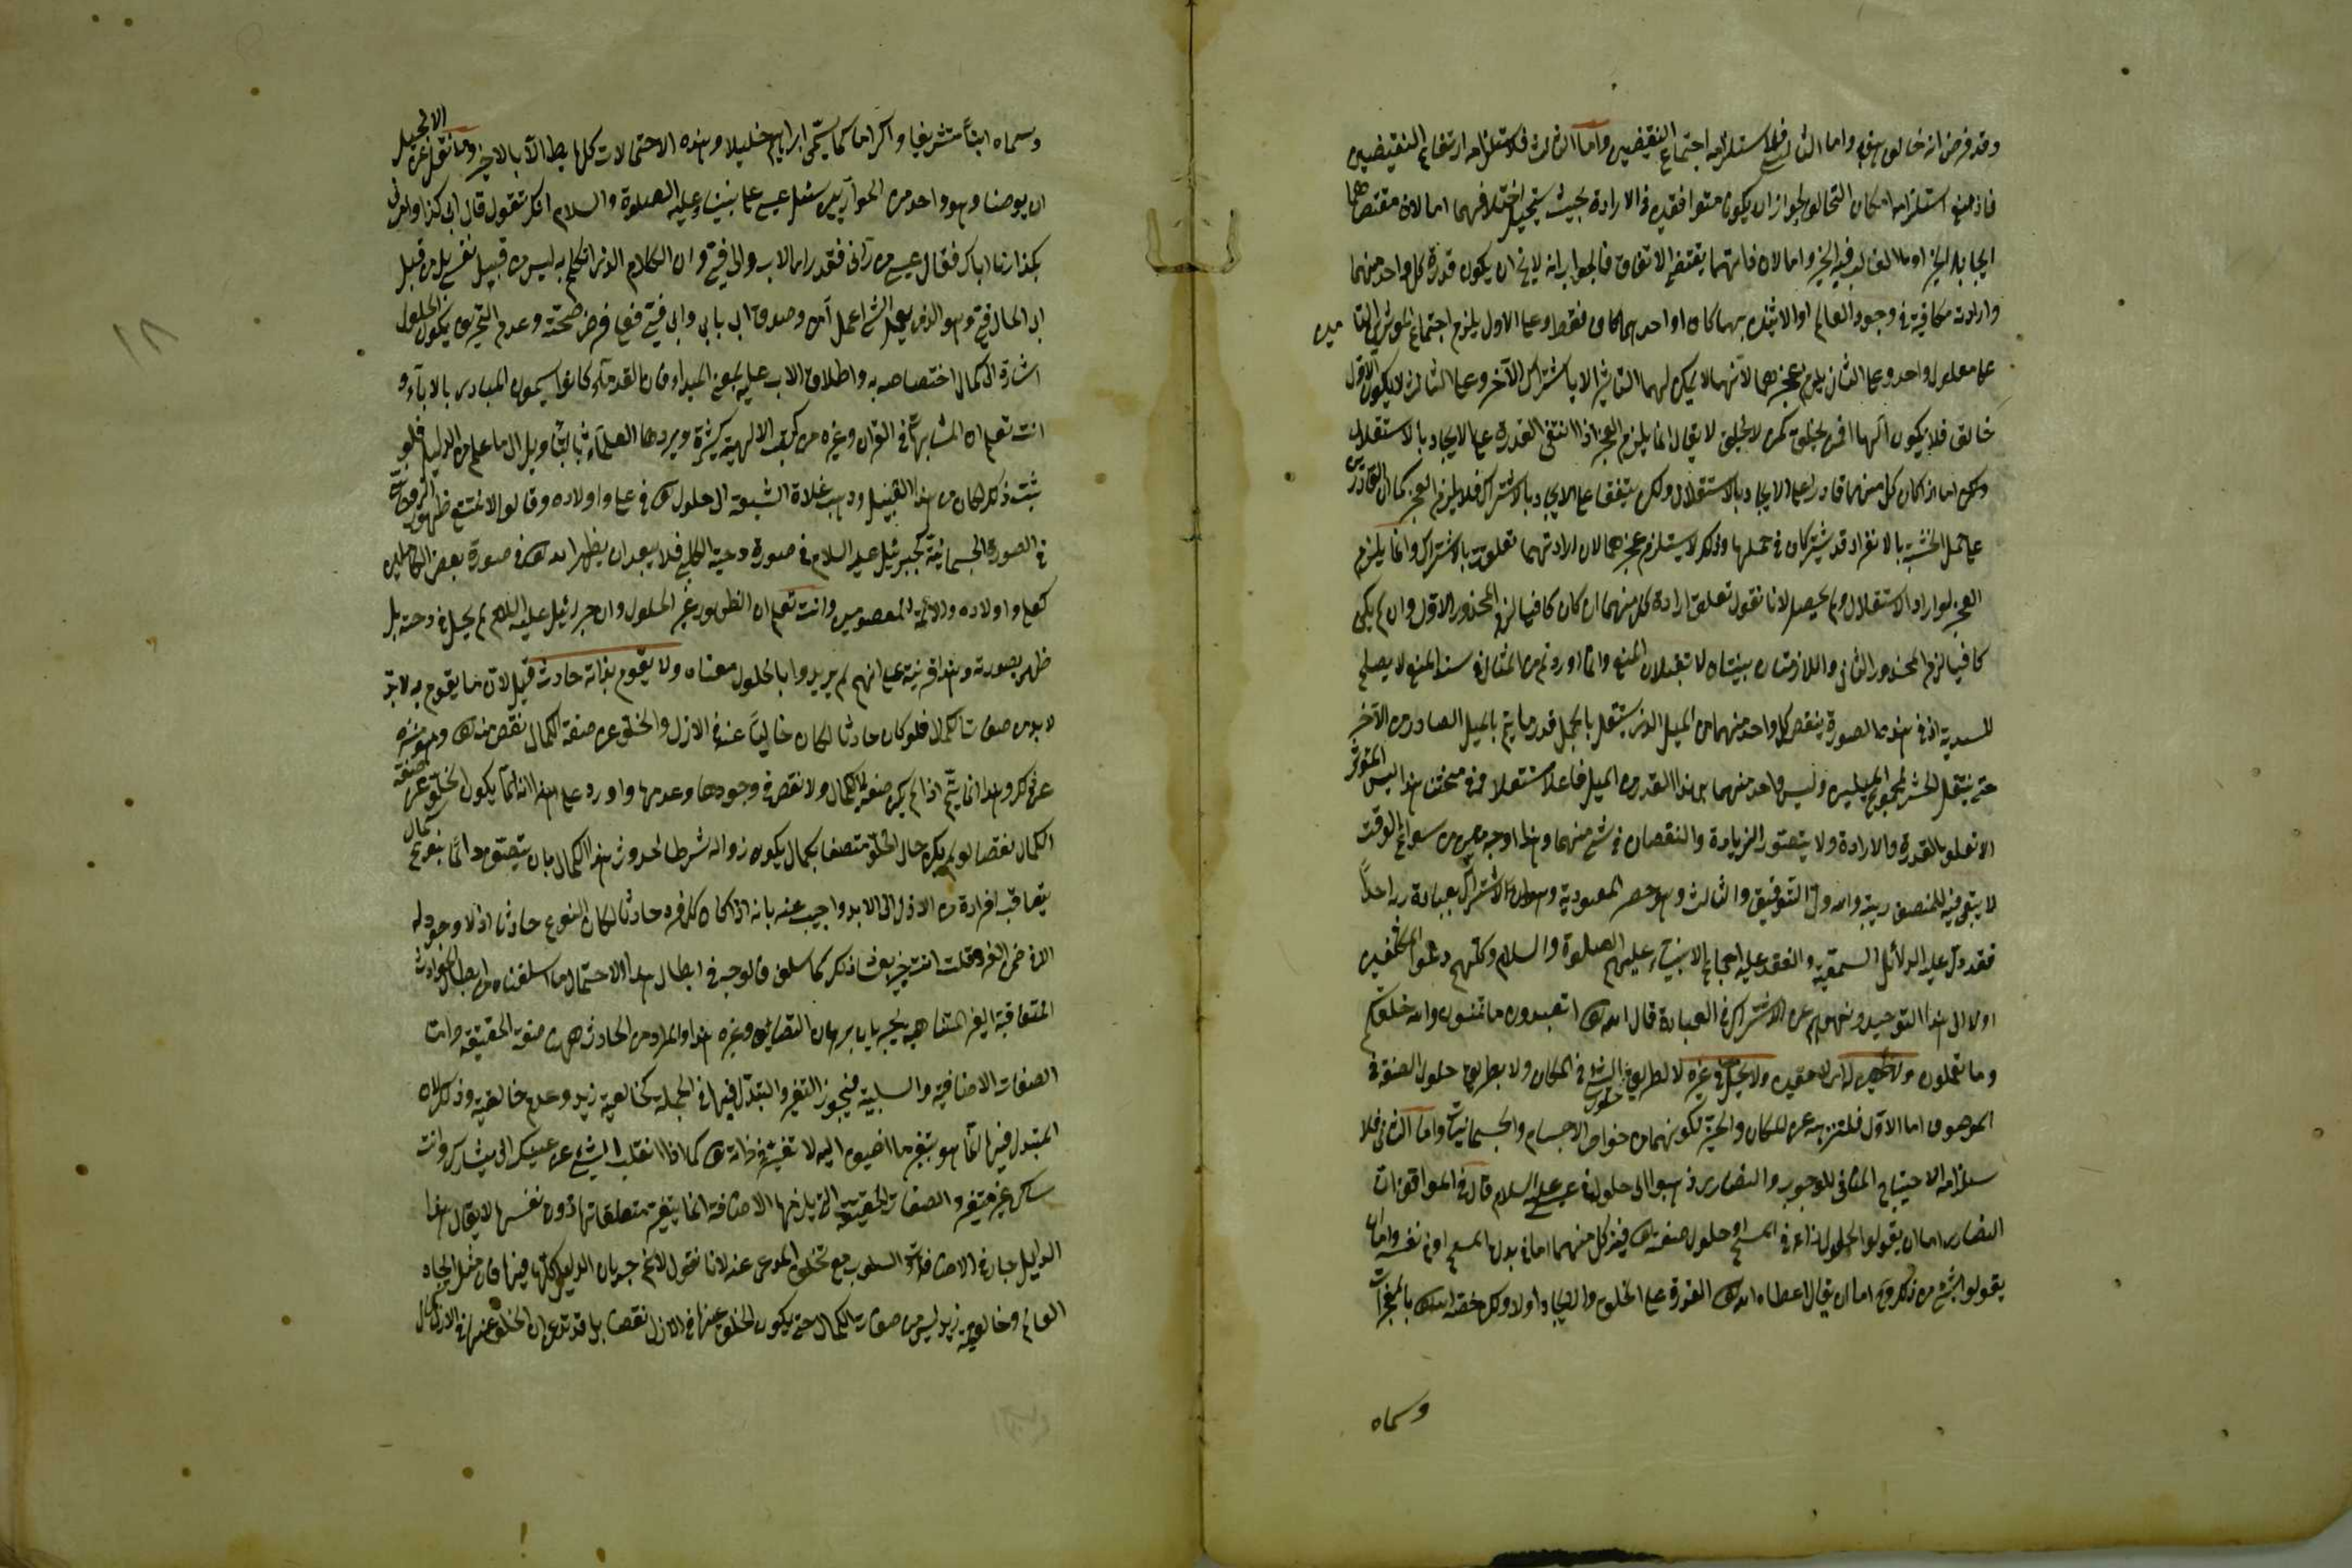 وقد فرض انه خالق هف واما الثاني فلاستلزامه اجتماع النقيضين واما الثالث فلاستلزامه ارتفاع النقيضين
فان منع استلزامه امكان التخالف لجواز ان يكونا متوافقين في الارادة بحيث يستحيل اختلافهما اما لان مقتضاهما
ايجاد الخير او ما الغالب فيه الخير واما لان ذاتهما يقتضي الاتفاق فالجواب انه لا يخ ان يكون قدرة كل واحد منهما
وارادته كافية في وجود العالم او لا شيء منهما كاف او احدهما كاف فقط وعلى الاول يلزم اجتماع المؤثرين التامين
على معلول واحد وعلى الثاني يلزم عجزهما لانهما لا يمكن لهما التاثير الا باشتراك الآخر وعلى الثالث لا يكون الاول
خالقا فلا يكون الها افمن يخلق كمن لا يخلق لا يقال انما يلزم العجز اذا انتفى القدرة على الايجاد بالاستقلال
ولكن اما اذا كان كل منهما قادرا على الايجاد بالاستقلال ولكن يتفقا على الايجاد بالاشتراك فلا يلزم العجز كما ان القادرين
على حمل الخشبة بالانفراد قد يشتركان في حملها وذلك لا يستلزم عجزهما لان ارادتهما تعلقت بالاشتراك وانما يلزم
العجز لو ارادا الاستقلال ولم يحصل لانا نقول تعلق ارادة كل منهما ان كان كافيا لزم المحذور الاول وان لم يكن
كافيا لزم المحذور الثاني والملازمتان بينتان لا تقبلان المنع وانما اوردتم من المثال في سند المنع لا يصلح
للسندية اذ في هذه الصورة ينقص كل واحد منهما من الميل الذي يستقل بالحمل قدر ما يتم بالميل الصادر من الآخر
حتى ينتقل الخشبة بمجموع الميلين وليس واحد منهما بهذا القدر من الميل فاعلا مستقلا وفي مبحثنا هذا ليس المؤثر
الا تعلق القدرة والارادة ولا يتصور الزيادة والنقصان في شيء منهما وهذا وجه من سوانح الوقت
لا يبقى فيه للمنصف ريبة والله ولي التوفيق والثالث وهو حصر المعبودية وهو ان لا يشرك بعبادة ربه احدا
فقد دل عليه الدلائل السمعية وانعقد عليه اجماع الانبياء عليهم الصلوة والسلام وكلهم دعوا المكلفين
اولا الى هذا التوحيد ونهوهم عن الاشراك في العبادة قال الله تعالى اتعبدون ما تنحتون والله خلقكم
وما تعملون ولا يحل في غيره لا بطريق حلول الشيء في المكان ولا بطريق حلول الصفة في
الموصوف اما الاول فلتنزهه عن المكان والحيز لكونهما من خواص الاجسام والجسمانيات واما الثاني فلا
ستلزامه الاحتياج المنافي للوجوب والنصارى ذهبوا الى حلوله في عيسى عليه السلام قال في المواقف ان
النصارى اما ان يقولوا بحلول ذاته في المسيح او حلول صفته تعالى فيه كل منهما اما في بدن المسيح او في نفسه واما ان
يقولوا بشيء من ذلك وح اما ان يقال اعطاه الله تعالى القدرة على الخلق والايجاد اولا ولكن خصه الله تعالى بالمعجزات
وسماه
وسماه ابنا تشريفا واكراما كما سمى ابراهيم خليلا وهذه الاحتمالات كلها باطلة الا الاخير وما نقل عن الانجيل
ان يوحنا وهو واحد من الحواريين سئل عيسى على نبينا وعليه الصلوة والسلام انك تقول قال ابي كذا وامرني
بكذا ارنا اباك فقال عيسى من رآني فقد راى الاب وابي في وان الكلام الذي اتكلم به ليس من قبيل نفسي بل من قبل
ابي الحال في وهو الذي يعمل الشيء اعمل آمن وصدق اني بابي وابي في فعلى فرض صحته وعدم التحريف يكون الحلول
اشارة الى كمال اختصاصه به واطلاق الاب عليه بمعنى المبدا فان القدماء كانوا يسمون المبادي بالاباء و
انت تعلم ان المتشابهات في القران وغيره من كتب الالهية كثيرة ويردها العلماء بالتاويل الى ما علم من الدليل فلو
ثبت ذلك لكان من هذا القبيل وذهب غلاة الشيعة الى حلوله تعالى في علي واولاده وقالوا لا يمتنع ظهور الروحاني
في الصورة الجسمانية كجبرئيل عليه السلام في صورة دحية الكلبي فلا يبعد ان يظهر الله تعالى في صورة بعض الكاملين
كعلي واولاده والائمة المعصومين وانت تعلم ان الظهور غير الحلول وان جبرئيل عليه السلام لم يحل في دحية بل
ظهر بصورته وهذا قرينة على انهم لم يريدوا بالحلول معناه ولا يقوم بذاته حادث قيل لان ما يقوم به لابد
لابد من صفات كمال فلو كان حادثا لكان خاليا عنه في الازل والخلو عن صفة الكمال نقص منه تعالى وهو منزه
عن ذلك وهذا انما يتم اذا لم يكن صفة لا كمال ولا نقص في وجودها وعدمها واورد على هذا انه انما يكون الخلو عن صفة
الكمال نقصا لو لم يكن حال الخلو متصفا بكمال يكون زواله شرطا لحدوث هذا الكمال بان يتصف دائما بنوع كمال
يتعاقب افراده من الازل الى الابد واجيب عنه بانه اذا كان كل فرد حادثا لكان النوع حادثا اذ لا وجود له
الا في ضمن الفرد قلت انت خبير بفساد ذلك كما سلف فالوجه في ابطال هذا الاحتمال ما اسلفناه من ابطال الحوادث
المتعاقبة الغير المتناهية بجريان برهان التضايف وغيره هذا والمراد من الحادث ههنا صفة الحقيقية واما
الصفات الاضافية والسلبية فيجوز التغير والتبدل فيها في الجملة كخالقية زيد وعدم خالقيته وذلك لان
المتبدل فيها انما هو بتغير ما اضيف اليه لا تغير في ذاته تعالى كما اذا انقلب الشيء عن يمينك الى يسارك وانت
ساكن غير متغير والصفات الحقيقية التي يلزمها الاضافة انما يتغير متعلقاتها دون نفسها لا يقال هذا
الدليل جار في الاضافات والسلوب مع تخلف المدعى عنه لانا نقول لا نم جريان الدليل كله فيها فان مثل ايجاد
العالم وخالقية زيد ليس من صفات الكمال حتى يكون الخلو عنها في الازل نقصا بل قد تدعى ان الخلو عنها في الازل كمال
١٨